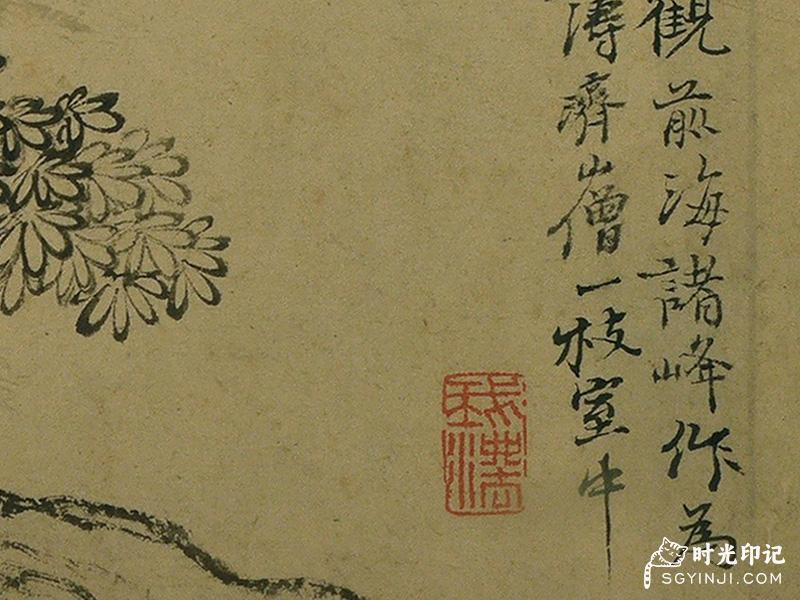 觀前海諸峰作為
濤濟山僧一枝室中
我法
时光印记
SGYINJI.COM